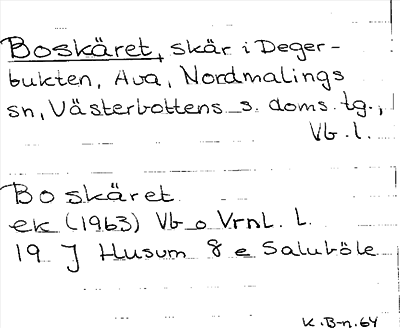 Boskäret, skär i Deger-
bukten, Ava, Nordmalings
sn, Västerbottens s. doms. tg.,
Vb. l.
Boskäret
ek (1963) Vb o Vrnl. L.
19 J Husum 8 e Saluböle
K. B-n. 64